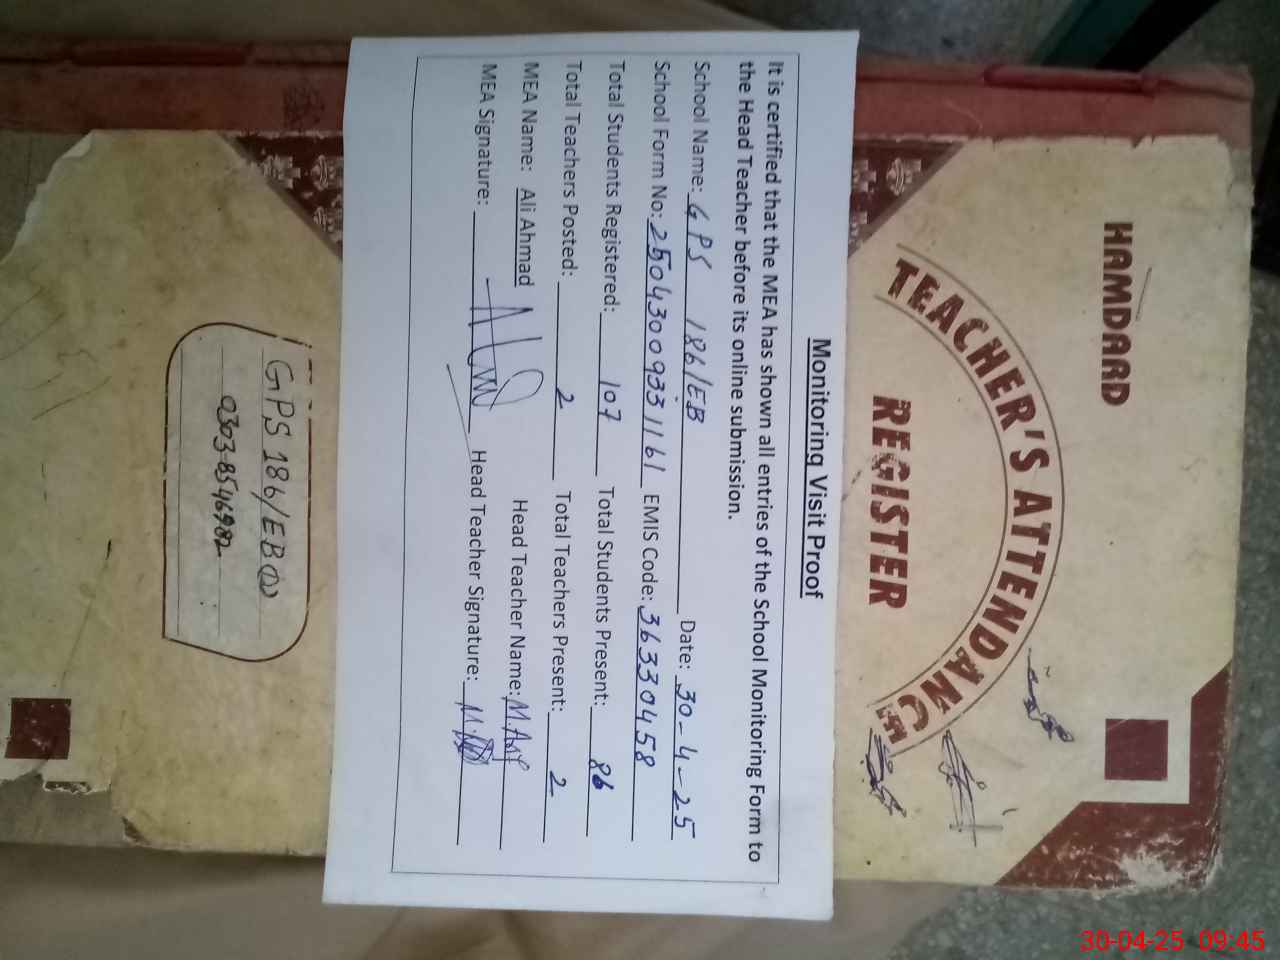 Monitoring Visit Proof
It is certified that the MEA has shown all entries of the School Monitoring Form to
the Head Teacher before its online submission.
School Name: GPS 186/EB Date: 30-4-25
School Form No: 2504300933 1161 EMIS Code: 36330458
Total Students Registered: 107 Total Students Present: 86
Total Teachers Posted: 2 Total Teachers Present: 2
MEA Name: Ali Ahmad Head Teacher Name: M.
MEA Signature: Head Teacher Signature:
HAMDARD
TEACHER'S ATTENDANCE
REGISTER
GPS 186/EB
0303-8546982
30-04-25 09:45